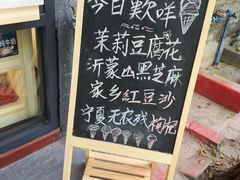 今日歎咩
茉莉豆腐花
沂蒙山黑芝麻
家乡紅豆沙
宁夏无农残枸杞